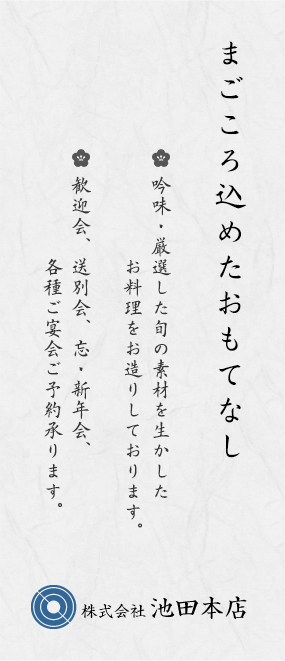 まごころ込めたおもてなし
吟味・厳選した旬の素材を生かした
お料理をお造りしております。
歓迎会、送別会、忘・新年会、
各種ご宴会ご予約承ります。
株式会社 池田本店